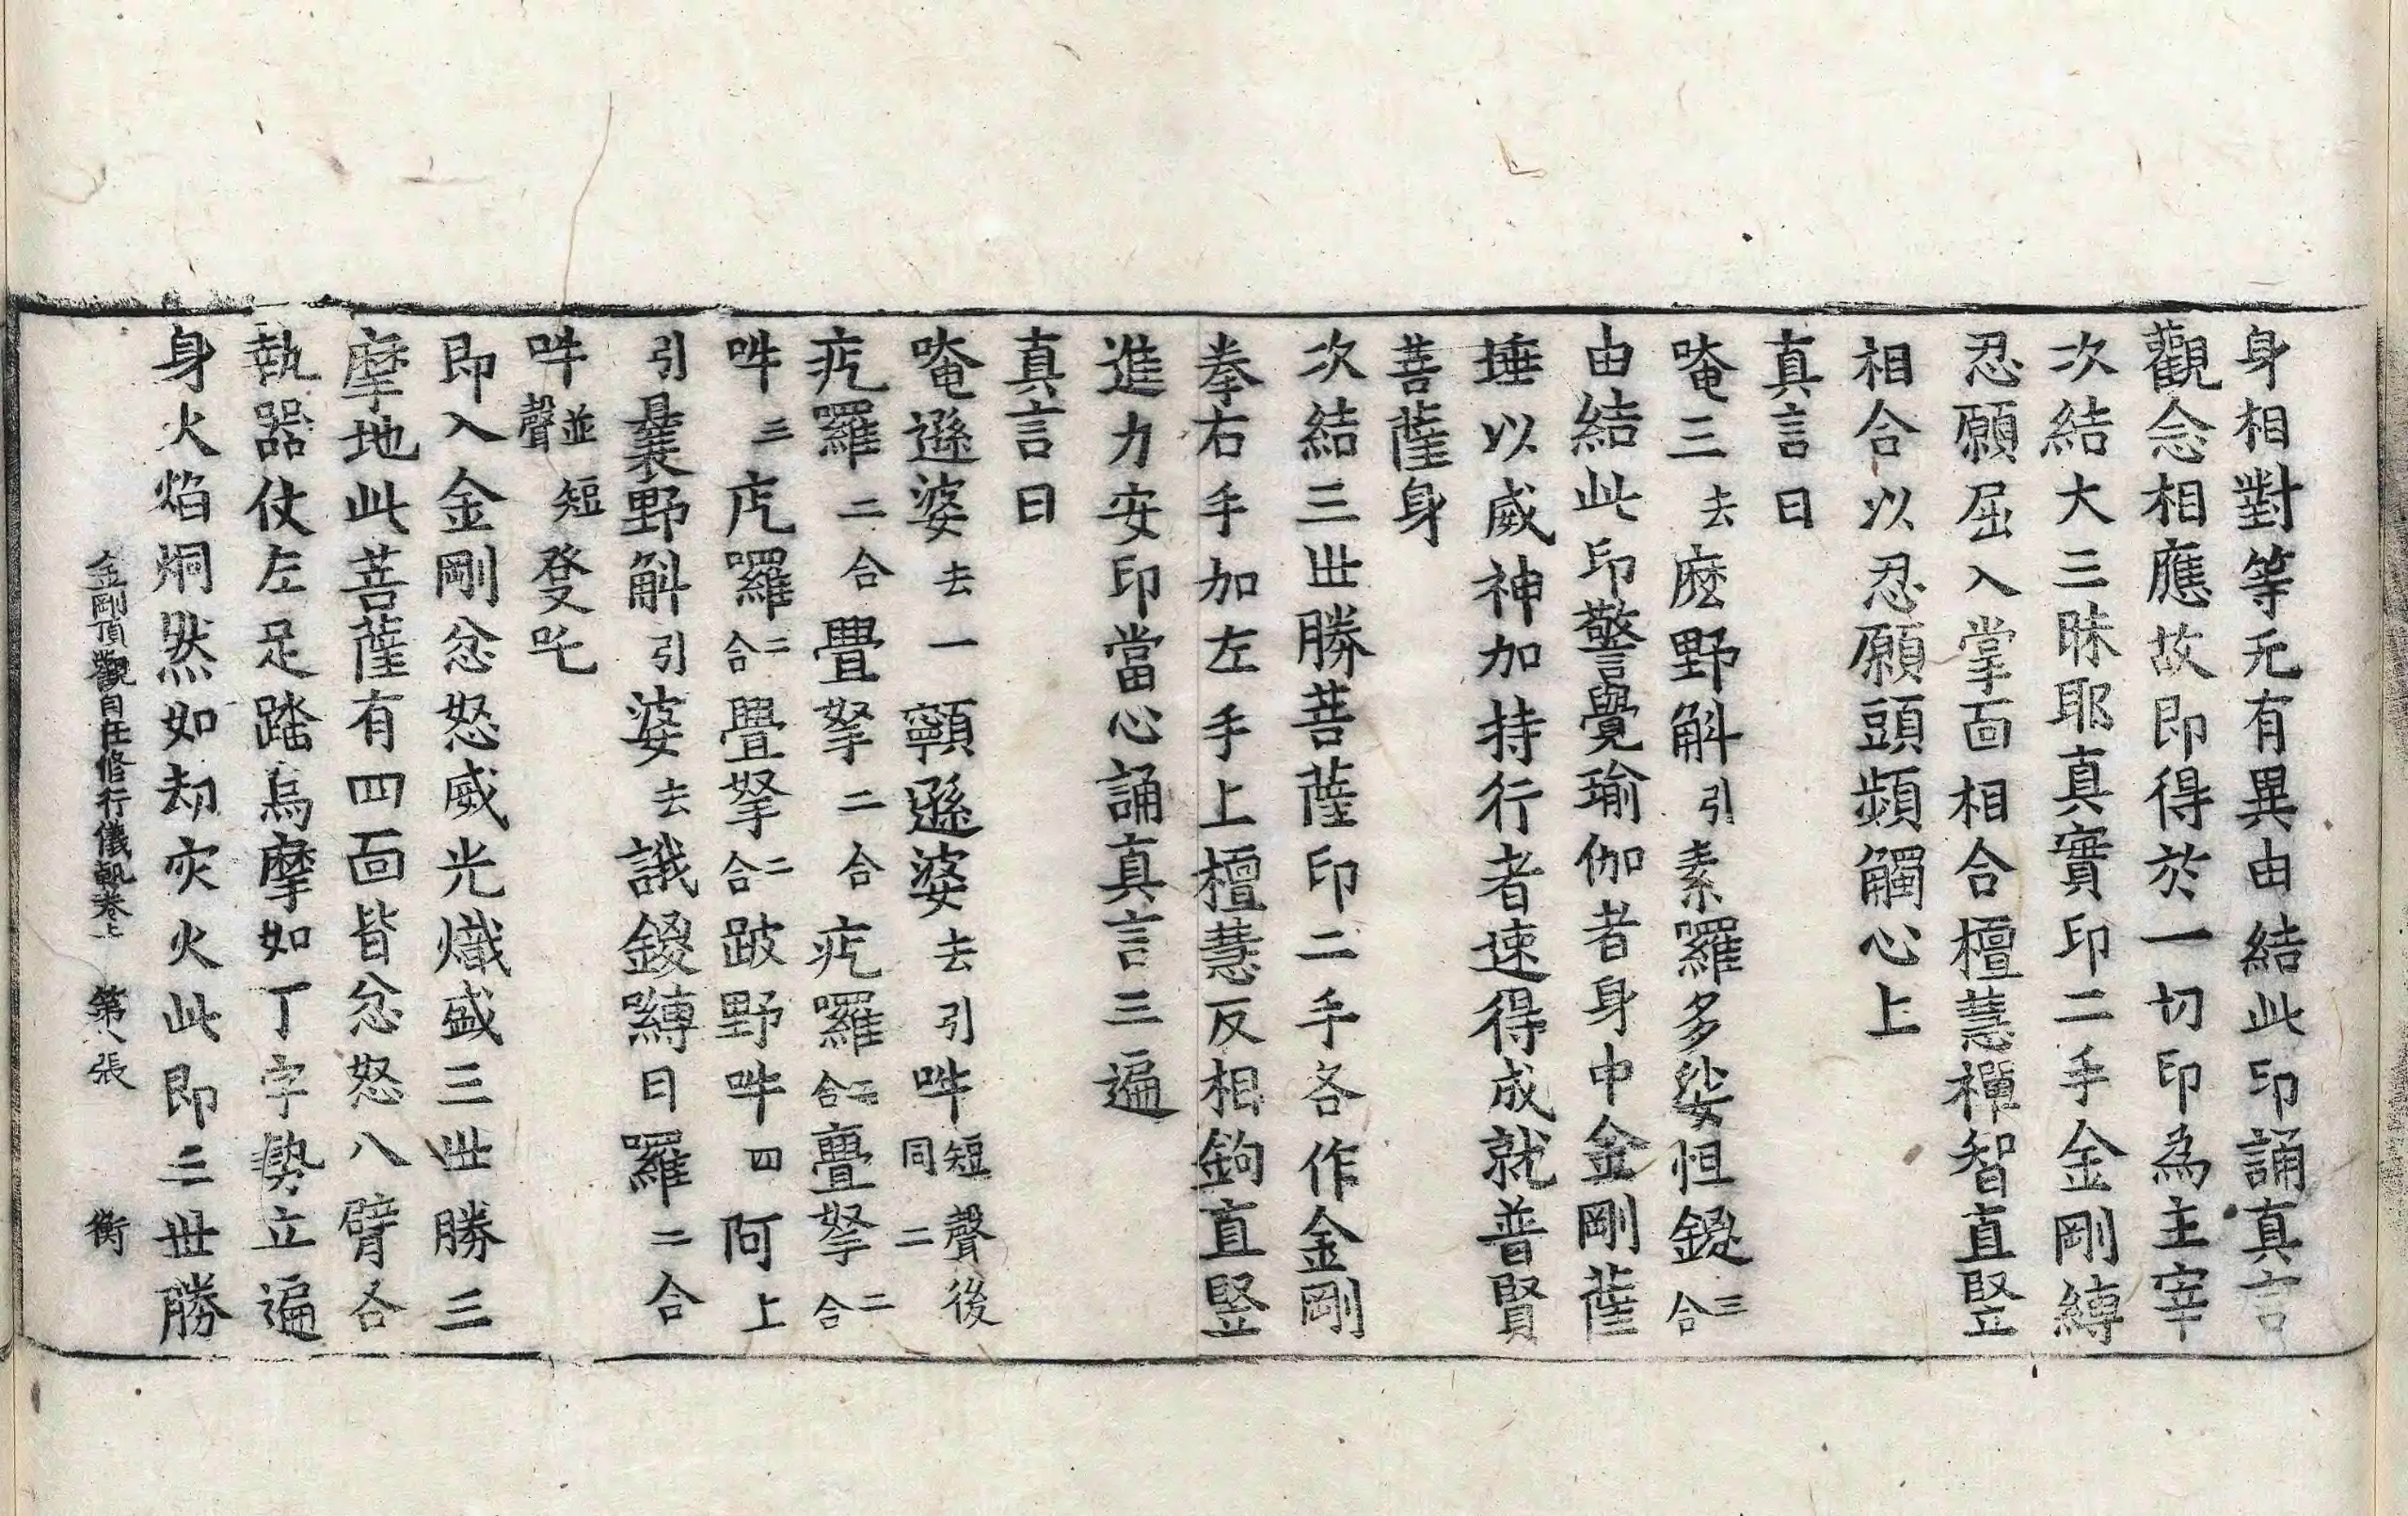 身相對等无有異由結此印誦真言
觀念相應故即得於一切印為主宰
次結大三昧耶真實印二手金剛縛
忍願屈入掌面相合檀慧禪智直竪
相合以忍願頭頻觸心上
真言曰
唵三去麽野斛引素羅多娑怛鑁三合
由結此印警覺瑜伽者身中金剛薩
捶以威神加持行者速得成就普賢
菩薩身
次結三世勝菩薩印二手各作金剛
拳右手加左手上檀慧反相鉤直竪
進力安印當心誦真言三遍
真言曰
唵遜婆去一顐遜婆去引吽短聲後同二
疙羅二合疊拏二合疙羅二合疊拏二合
吽三疙羅二合疊拏二合跛野吽四阿上
引曩野斛引婆去誐鍐嚩日羅二合
吽並短聲發吒
即入金剛忿怒威光熾盛三世勝三
摩地此菩薩有四面皆忿怒八臂各
執器仗左足踏烏摩如丁字勢立遍
身火焰烔然如劫灾火此即三世勝
金剛頂觀自在修行儀軌卷上 第八張 衡